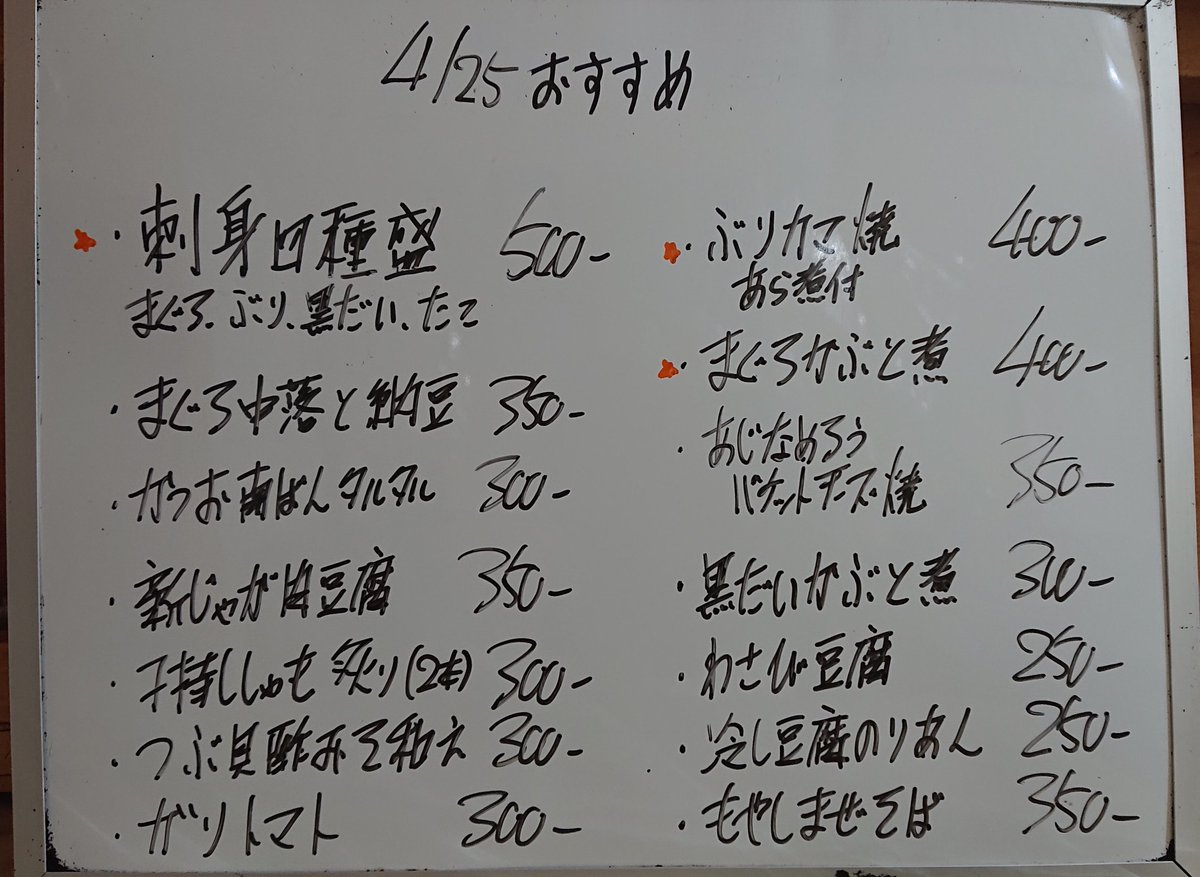 4/25 おすすめ
・刺身四種盛 500-
まぐろ、ぶり、黒だい、たこ
・まぐろ中落と納豆 350-
・かつお南ばんタルタル 300-
・新じゃが肉豆腐 350-
・子持ししゃも炙り(2本) 300-
・つぶ貝酢みそ和え 300-
・ガリトマト 300-
・ぶりカマ焼 400-
あら煮付
・まぐろかぶと煮 400-
・あじなめろう
バケットチーズ焼 350-
・黒だいかぶと煮 300-
・わさび豆腐 250-
・冷し豆腐のりあん 250-
・もやしまぜそば 350-